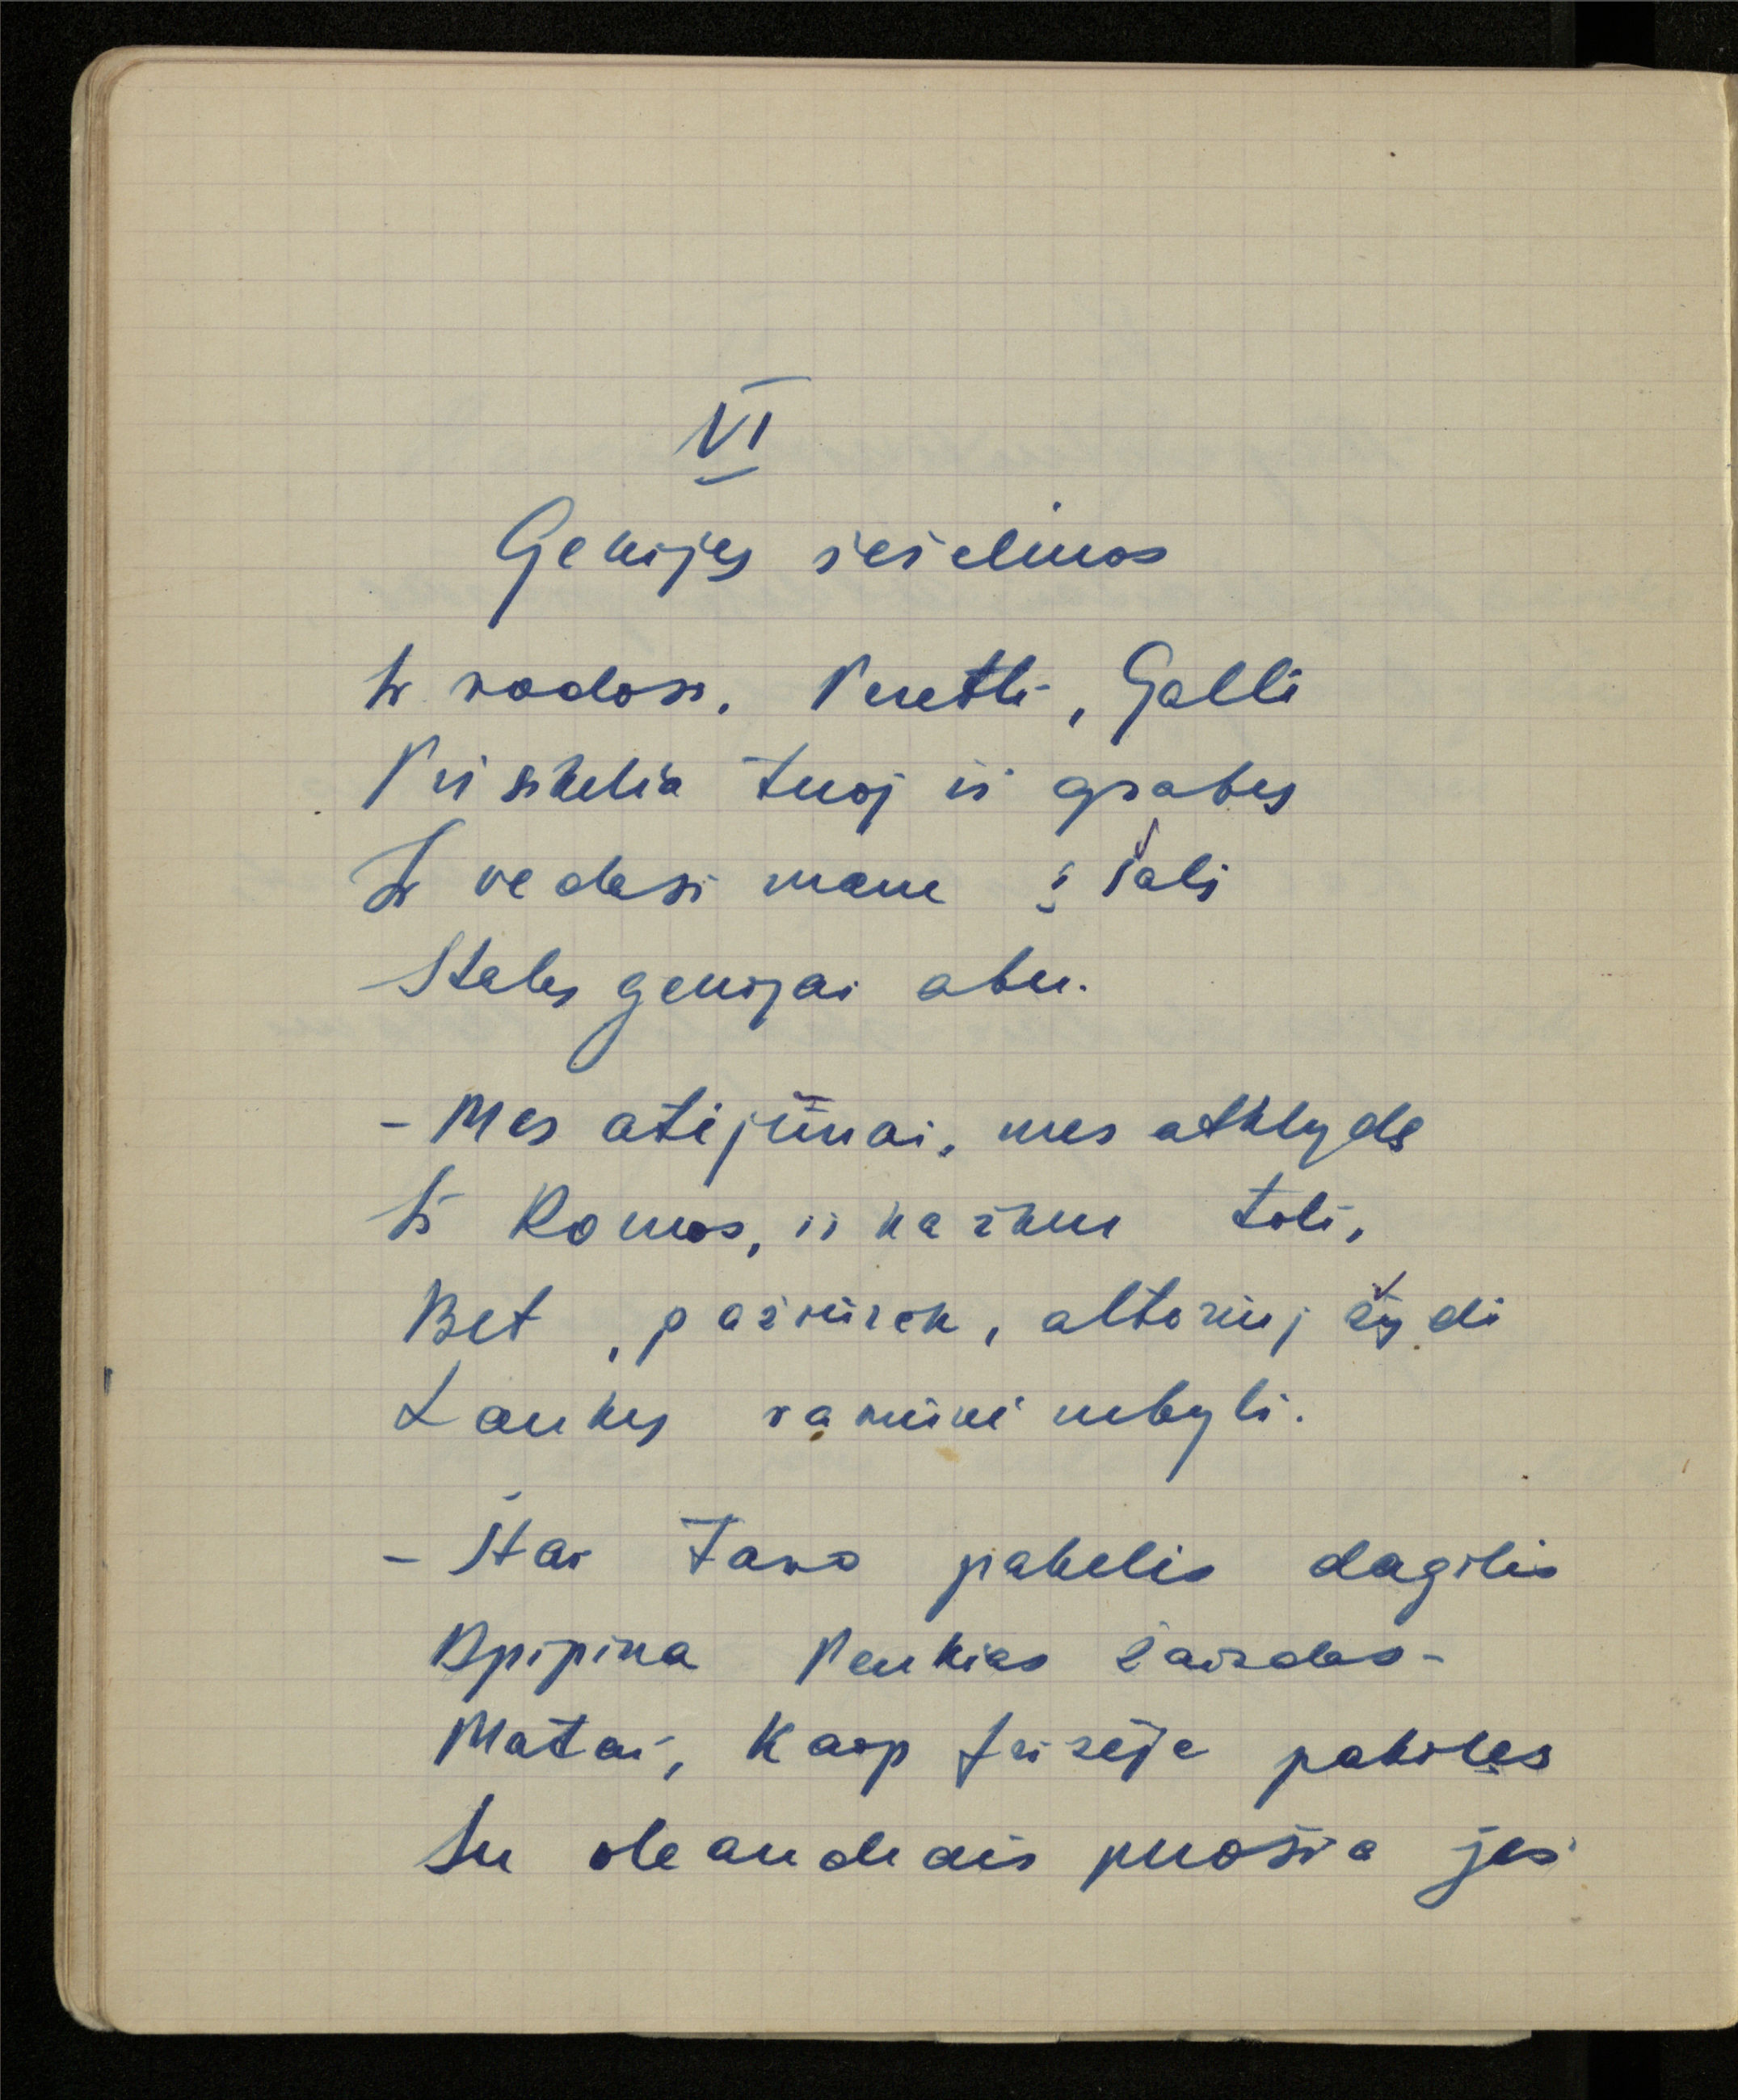 VI
Genijų šešėlinos
Ir rodos, Peretti, Galli
Prisikelia tuoj iš grabų
Ir vedasi mane į šalį
Stalų genijai abu.
- Mes atėjūnai, mes atklydę
Iš Romos, iš kažkur toli,
Bet, pažiūrėk, altoriuj žydi
Laukų ramunė nebyli.
- Štai tavo pakelės dagilis
Apipina Penkias žaizdas -
Matai, kaip frizėje pakilęs
Su oleandrais puošia jas